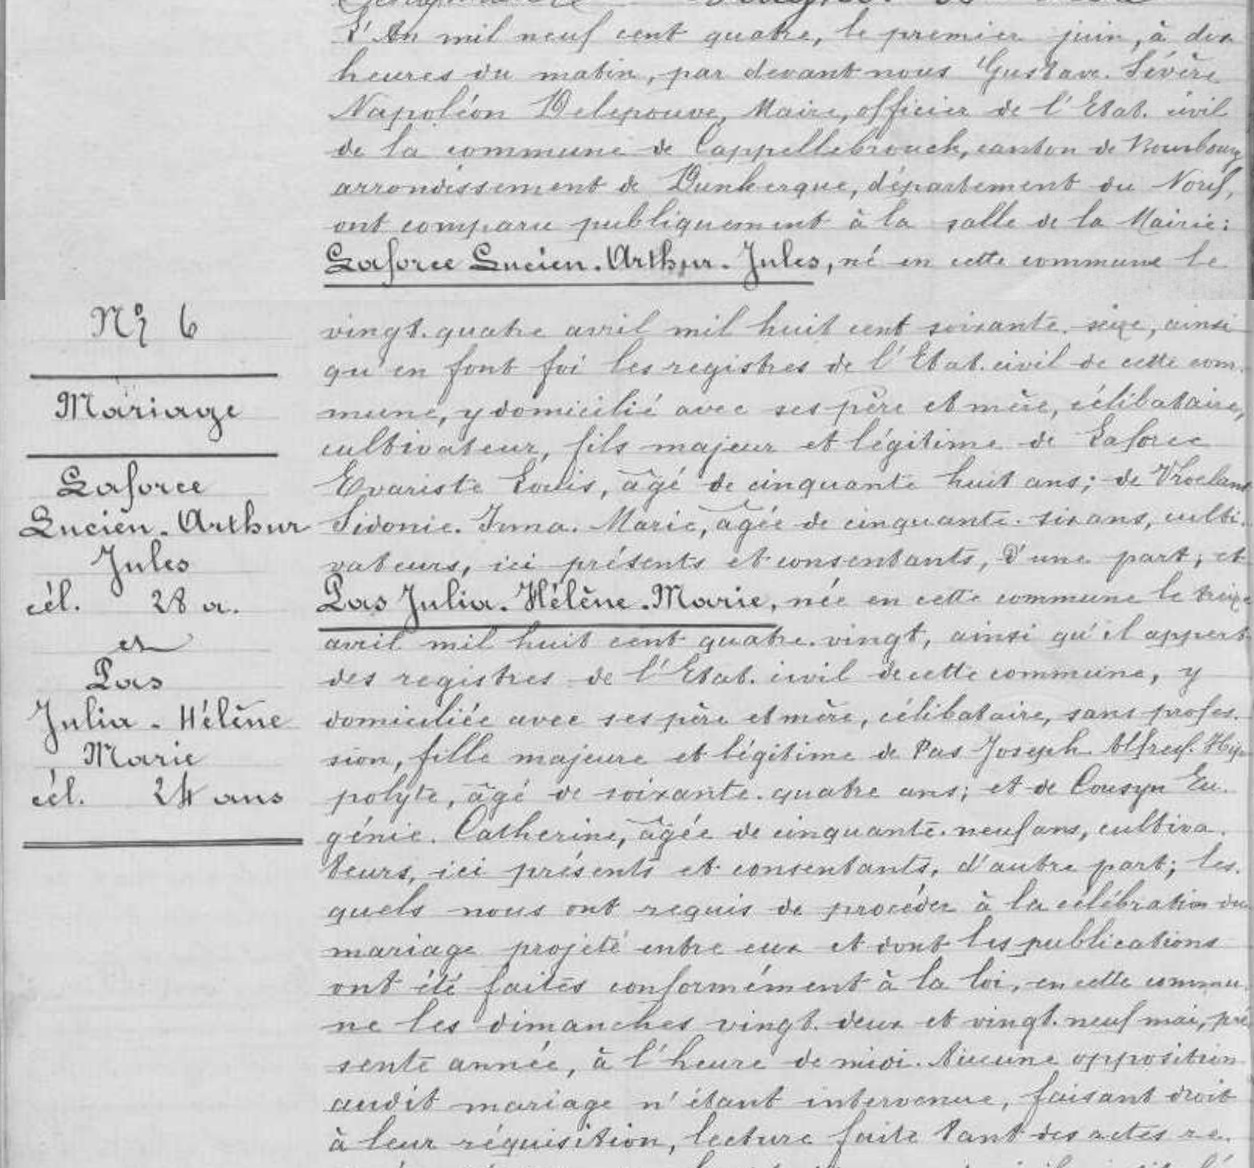 L'An mil neuf cent quatre, le premier juin, à dix
heures du matin, par devant nous Gustave. Sévère
Napoléon Delepouve, Maire, officier de l'Etat. civil
de la commune de Cappellebrouck, canton de Bourbourg
arrondissement de Dunkerque, département du Nord,
ont comparu publiquement à la salle de la Mairie:
Laforce Lucien-Arthur-Jules, né en cette commune le
N° 6
Mariage
Laforce
Lucien-Arthur
Jules
cél. 28 a.
et
Pas
Julia-Hélène
Marie
cél. 24 ans
vingt. quatre avril mil huit cent soixante. seize, ainsi
qu'en font foi les registres de l'Etat. civil de cette com.
mune, y domicilié avec ses père et mère, célibataire,
cultivateur, fils majeur et légitime de Laforce
Evariste Louis, âgé de cinquante huit ans; de Vroelant
Sidonie. Irma. Marie, âgée de cinquante. six ans, culti.
vateurs, ici présents et consentants, d'une part; et
Pas Julia-Hélène-Marie, née en cette commune le treize
avril mil huit cent quatre. vingt, ainsi qu'il appert
des registres de l'Etat. civil de cette commune, y
domiciliée avec ses père et mère, célibataire, sans profes.
sion, fille majeure et légitime de Pas Joseph. Alfred. Hip
polyte, âgé de soixante. quatre ans; et de Cousyn Eu.
génie. Catherine, âgée de cinquante. neuf ans, cultiva.
teurs, ici présents et consentants, d'autre part; les.
quels nous ont requis de procéder à la célébration du
mariage projeté entre eux et dont les publications
ont été faites conformément à la loi, en cette commu.
ne les dimanches vingt. deux et vingt. neuf mai, pré
sente année, à l'heure de midi. Aucune opposition
audit mariage n'étant intervenue, faisant droit
à leur réquisition, lecture faite tant des actes re.